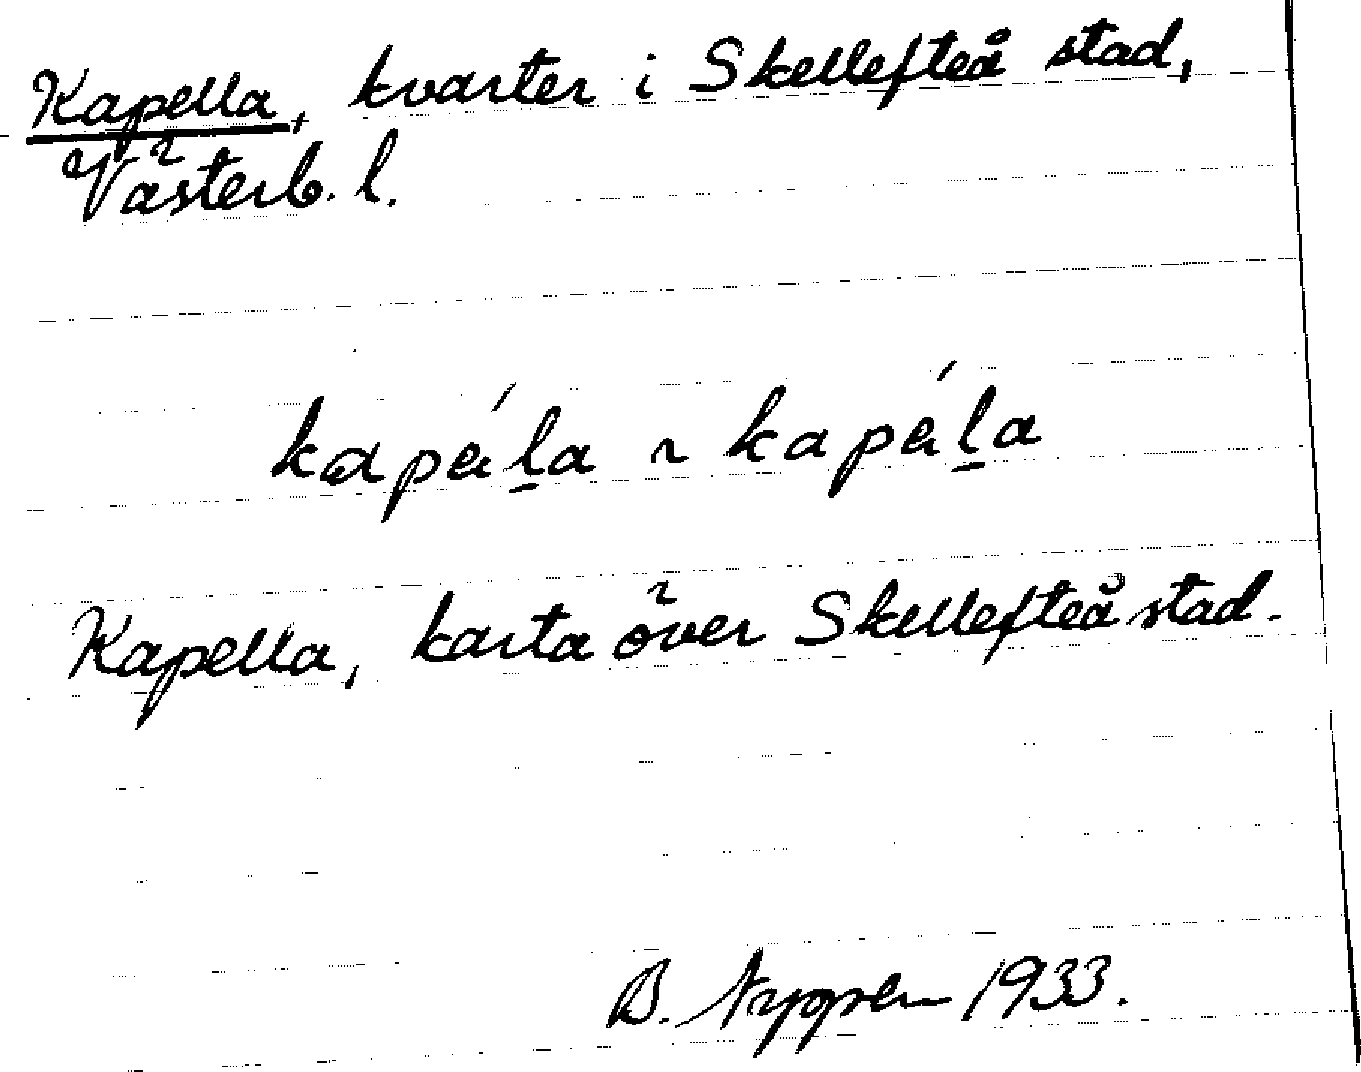 Kapella, kvarter i Skellefteå stad,
Västerb. l.
kapä́l̠a ~ kapä́l̠a
Kapella, karta över Skellefteå stad.
B. 1933.